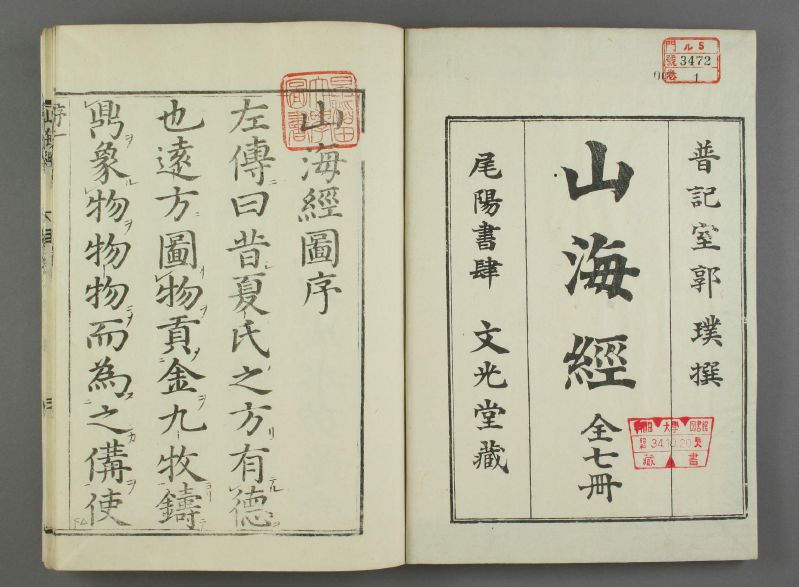 門 ル5
號 3472
卷 1
晋記室郭璞撰
山海經
全七冊
尾陽書肆 文光堂藏
34.10.20
藏書
山海經圖序
左傳曰昔夏氏之方有德
也遠方圖物貢金九牧鑄
鼎象物物物而為之備使
序一